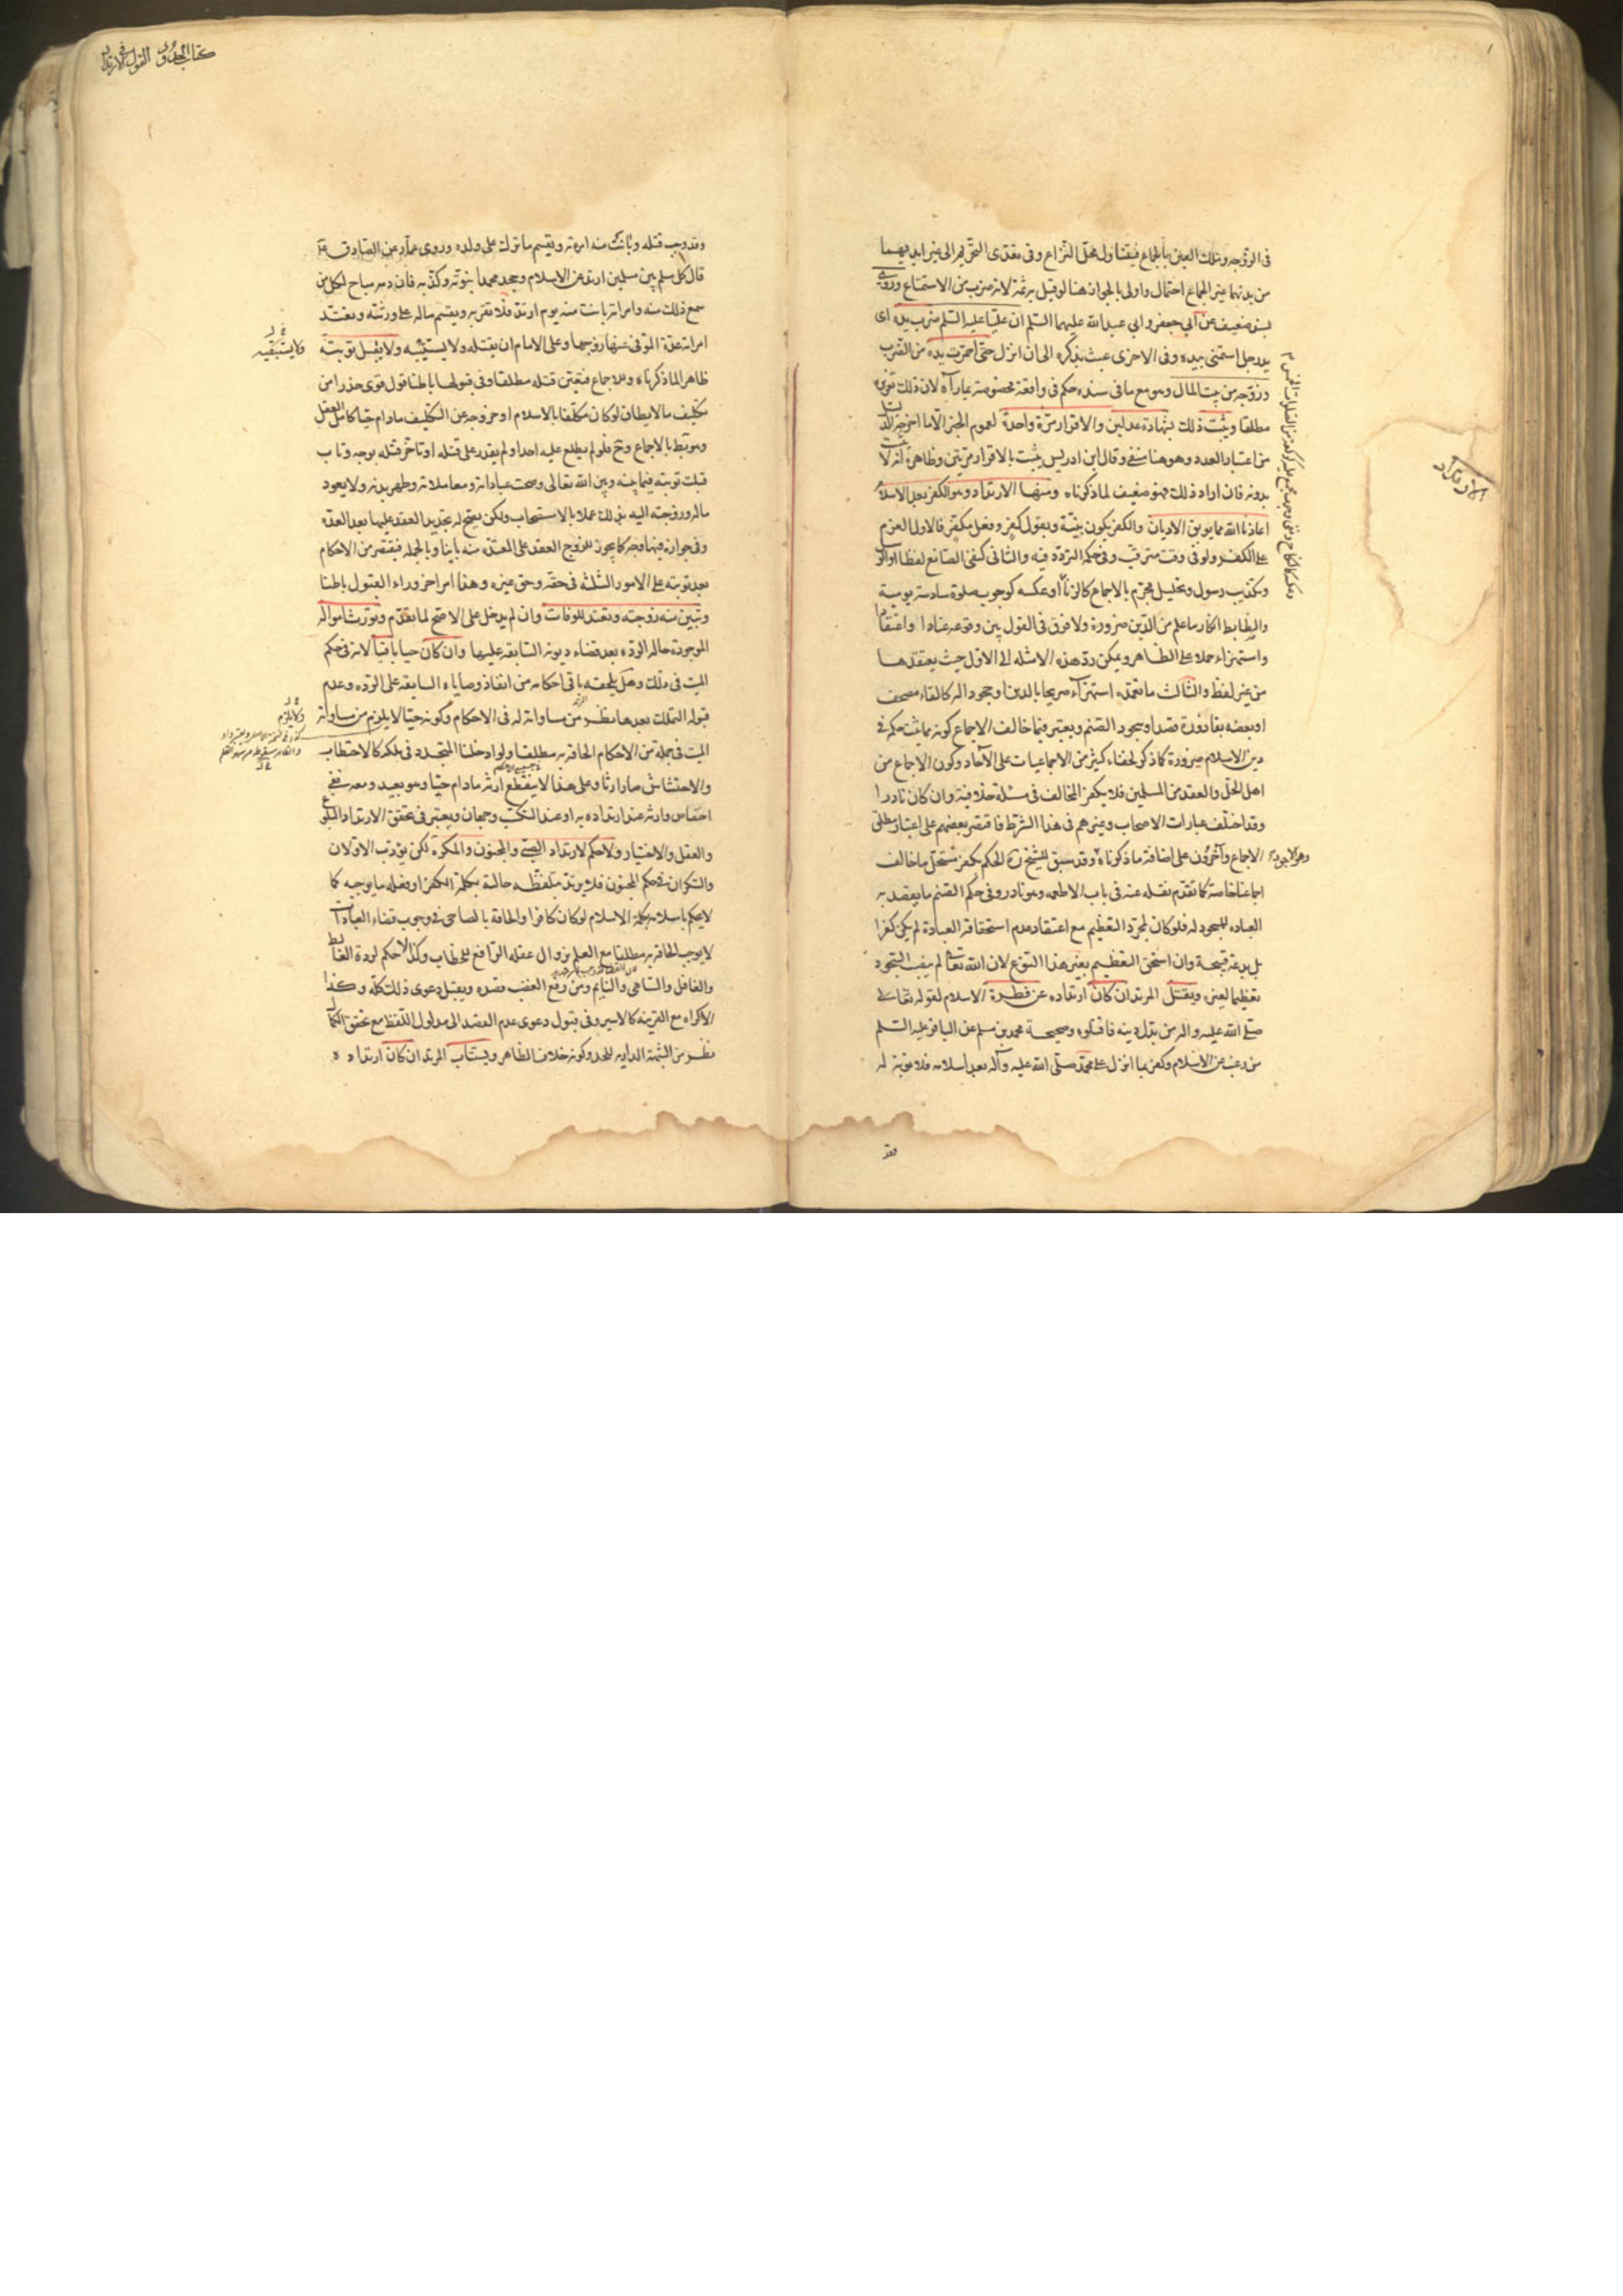 كتاب الحدود القول في الارتداد
الارتداد
في الزوجة وملك اليمين بالجماع فيتناول محل النزاع وفي تعدي التحريم الى غير ايديهما
من بدنهما غير الجماع احتمال واولى بالجواز هنا لو قيل به ثمة لانه ضرب من الاستمتاع وروى
بسند ضعيف عن ابي جعفر وابي عبد الله عليهما السلم ان عليا عليه السلم ضرب يده اى
يد رجل استمنى بيده وفي الاخرى عبث بذكره الى ان انزل حتى احمرت يده من الضرب
وزوجه من بيت المال وهو مع ما في سنده حكم في واقعة مخصوصة بما رآه لان ذلك تعزيره
مطلقا ويثبت ذلك بشهادة عدلين والاقرار مرة واحدة لعموم الخبر الا ما اخرجه الدليل
من اعتبار العدد وهو هنا منفي وقال ابن ادريس يثبت بالاقرار مرتين وظاهره انه لا يثبت
بدونه فان اراد ذلك فهو ضعيف لما ذكرناه ومنها الارتداد وهو الكفر بعد الاسلام
اعاذنا الله مما يوبق الاديان والكفر يكون بنية وبقول كفر وفعل مكفر فالاول العزم
على الكفر ولو في وقت مترقب وفي حكمه التردد فيه والثاني كنفي الصانع لفظا او الرسل
وتكذيب رسول وتحليل محرم بالاجماع كالزنا او عكسه كوجوب صلوة سادسة يومية
والضابط انكار ما علم من الدين ضرورة ولا فرق في القول بين وقوعه عنادا او اعتقادا
واستهزاء حملا على الظاهر ويمكن رد هذه الامثلة الى الاول حيث يعتقدها
من غير لفظ والثالث ما تعمده استهزاء صريحا بالدين او جحودا له كالقاء مصحف
او بعضه بقاذورة قصدا او سجود الصنم ويعتبر فيما خالف الاجماع كونه مما يثبت حكمه في
دين الاسلام ضرورة كما ذكر لخفاء كثير من الاجماعيات على الآحاد وكون الاجماع من
اهل الحل والعقد من المسلمين فلا يكفر المخالف في مسئلة خلافية وان كان نادرا
وقد اختلف عبارات الاصحاب وغيرهم في هذا الشرط فاقتصر بعضهم على اعتبار مطلق
الاجماع وآخرون على اضافة ما ذكرناه وقد سبق للشيخ ره الحكم بكفر مستحل ما خالف
وهو الاجود
اجماعنا خاصة كما تقدم نقله عنه في باب الاطعمه وهو نادر وفي حكم الصنم ما يقصد به
العباده للسجود له فلو كان لمجرد التعظيم مع اعتقاد عدم استحقاقه العبادة لم يكن كفرا
بل بدعة قبيحة وان استحق التعظيم بغير هذا النوع لان الله تعالى لم ينصب السجود
تعظيما لغيره ويقتل المرتد ان كان ارتداده عن فطرة الاسلام لقوله
صلى الله عليه واله من بدل دينه فاقتلوه وصحيحة محمد بن مسلم عن الباقر عليه السلم
من رغب عن الاسلام وكفر بما انزل على محمد صلى الله عليه وآله بعد اسلامه فلا توبة له
وقد
وقد وجب قتله وبانت منه امرته ويقسم ما ترك على ولده وروى عمار عن الصادق ع
قال كل مسلم بين مسلمين ارتد عن الاسلام وجحد محمدا نبوته وكذبه فان دمه مباح لكل من
سمع ذلك منه وامراته باينت منه يوم ارتد فلا تقربه ويقسم ماله على ورثته وتعتد
امراته عدة المتوفى عنها زوجها وعلى الامام ان يقتله ولا يستتيبه ولا يقبل توبته
ظاهرا لما ذكرناه وللاجماع فيتعين قتله مطلقا وفي قبولها باطنا قول قوى حذرا من
تكليف ما لا يطاق لو كان مكلفا بالاسلام او خروجه عن التكليف مادام حيا كامل العقل
وهو بط بالاجماع وح فلو لم يطلع عليه احد او لم يقدر على قتله او تاخر قتله بوجه وتاب
قبلت توبته فيما بينه وبين الله تعالى وصحت عباداته ومعاملاته وطهر بدنه ولا يعود
ماله وزوجته اليه بذلك عملا بالاستصحاب ولكن يصح له تجديد العقد عليها بعد العدة
وفي جوازه فيها وجه كما يجوز للزوج العقد على المعتدة منه باينا وبالجمله فيقتصر من الاحكام
بعد توبته على الامور الثلثة في حقه وحق غيره وهذا امر اخر وراء القبول باطنا
وتبين منه زوجته وتعتد للوفات وان لم يدخل على الاصح لما تقدم وتورث امواله
الموجودة حاله الرده بعد قضاء ديونه السابقه عليها وان كان حيا باقيا لانه في حكم
الميت في ذلك وهل يلحقه باقي احكامه من انفاذ وصاياه السابقه على الرده وعدم
قبوله التملك بعدها نظر من مساواته له في الاحكام وكونه حيا لا يلزم من مساواته
الميت في جملة من الاحكام الحاقه به مطلقا ولو ادخلنا المتجدد في ملكه كالاحتطاب
والاحتشاش صار ارثا وعلى هذا لا ينقطع ارثه مادام حيا وهو بعيد ومعه ففي
اختصاص وارثه عند ارتداده به او عند التكسب وجهان ويعتبر في تحقق الارتداد البلوغ
والعقل والاختيار ولا حكم لارتداد الصبي والمجنون والمكره لكن يؤدب الاولان
والسكران في حكم المجنون فلا يرتد بتلفظه حالته بكلمة الكفر او فعله ما يوجبه كما
لا يحكم باسلامه بكلمة الاسلام لو كان كافرا والحاقه بالصاحي في وجوب قضاء العبادات
لا يوجب الحاقه به مطلقا مع العلم بزوال عقله الرافع للخطاب وكذا لا حكم لردة الغالط
والغافل والساهي والنايم ومن رفع الغضب قصده ويقبل دعوى ذلك كله وكذا
الاكراه مع القرينه كالاسير وفي قبول دعوى عدم القصد الى مدلول اللفظ مع تحقق الكمال
نظر من الشبهة الدارئه للحد وكونه خلاف الظاهر ويستتاب المرتد ان كان ارتداده